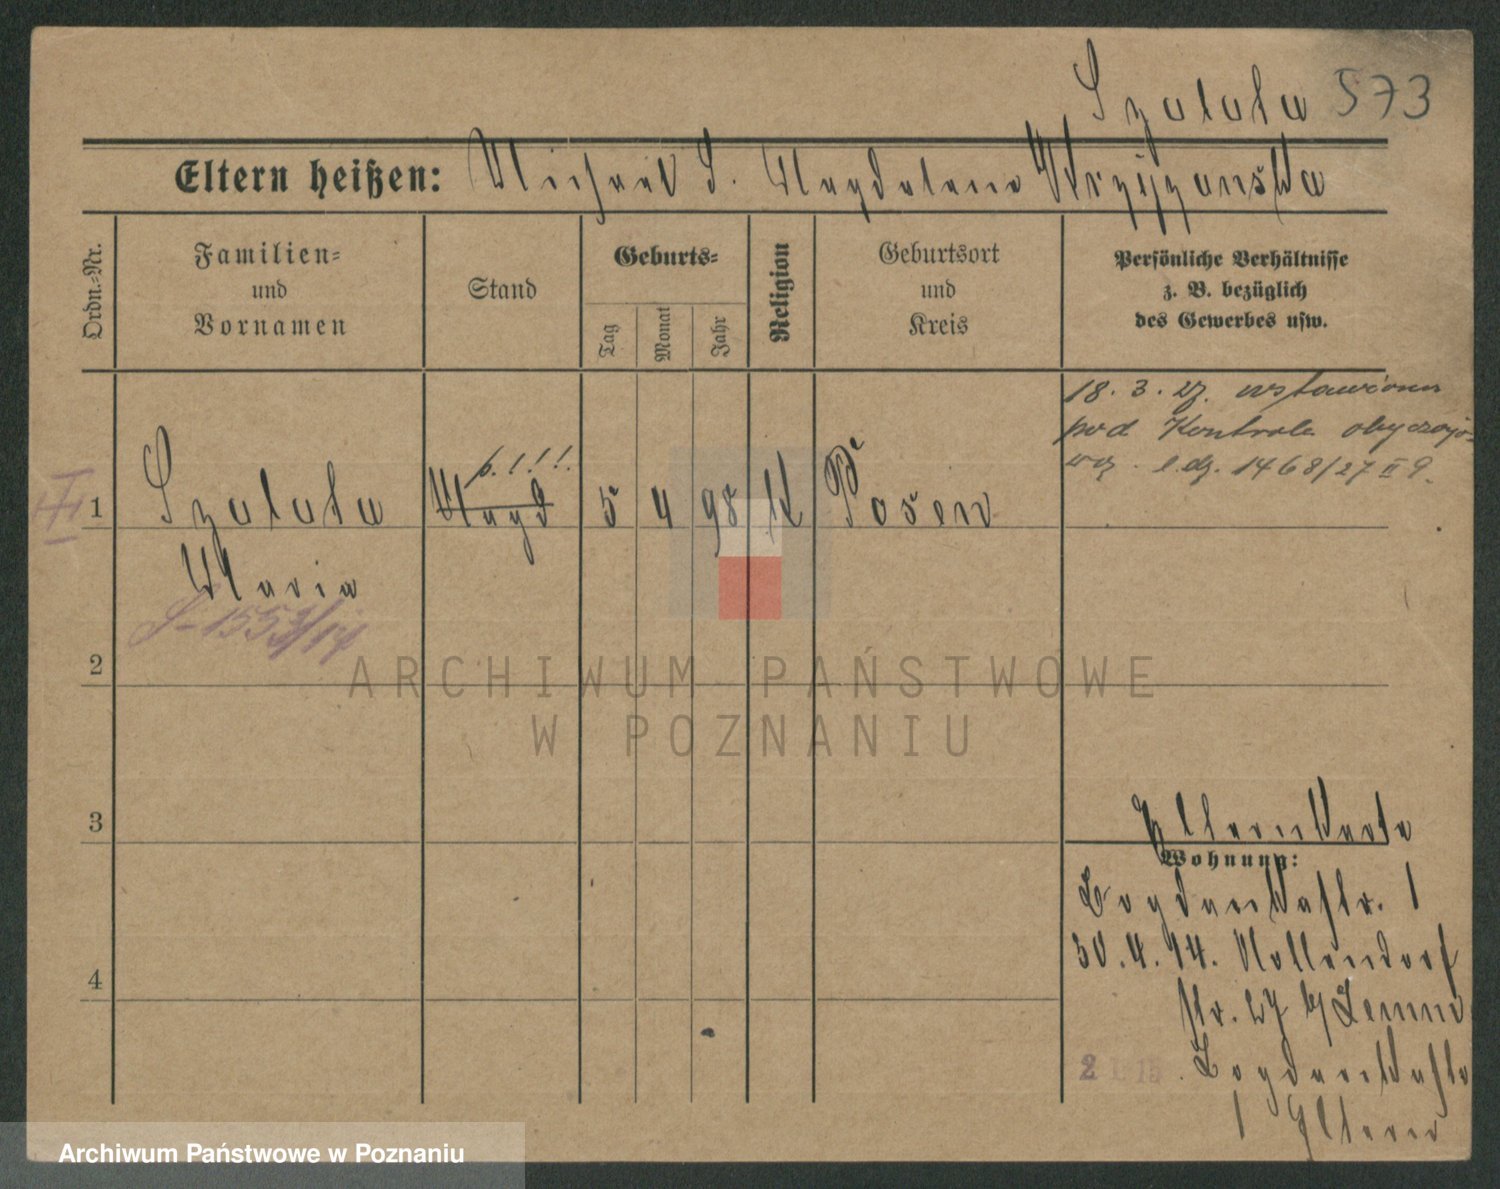 Szalata 573
Eltern heißen: Michael S. Magdalena Wrzyszanska
Ordn.-Nr.
Familien-
und
Vornamen
Stand
Geburts-
Tag
Monat
Jahr
Religion
Geburtsort
und
Kreis
Persönliche Verhältnisse
z. B. bezüglich
des Gewerbes usw.
18. 3. 27. wstawiona
pod Kontrola obyczajo-
wą l.dz. 1468/27 II 9.
p. ! ! ! !
1 Szalata Magd 5 4 98 K Posen
Maria
S-1553/14
2
3
4
Elternkarte
Wohnung:
Bogdankastr. 1
30.4.14. Nollendorf
str. 27 b/
2 1 15 . Bogdankastr
1 Eltern
ARCHIWUM PAŃSTWOWE
W POZNANIU
Archiwum Państwowe w Poznaniu